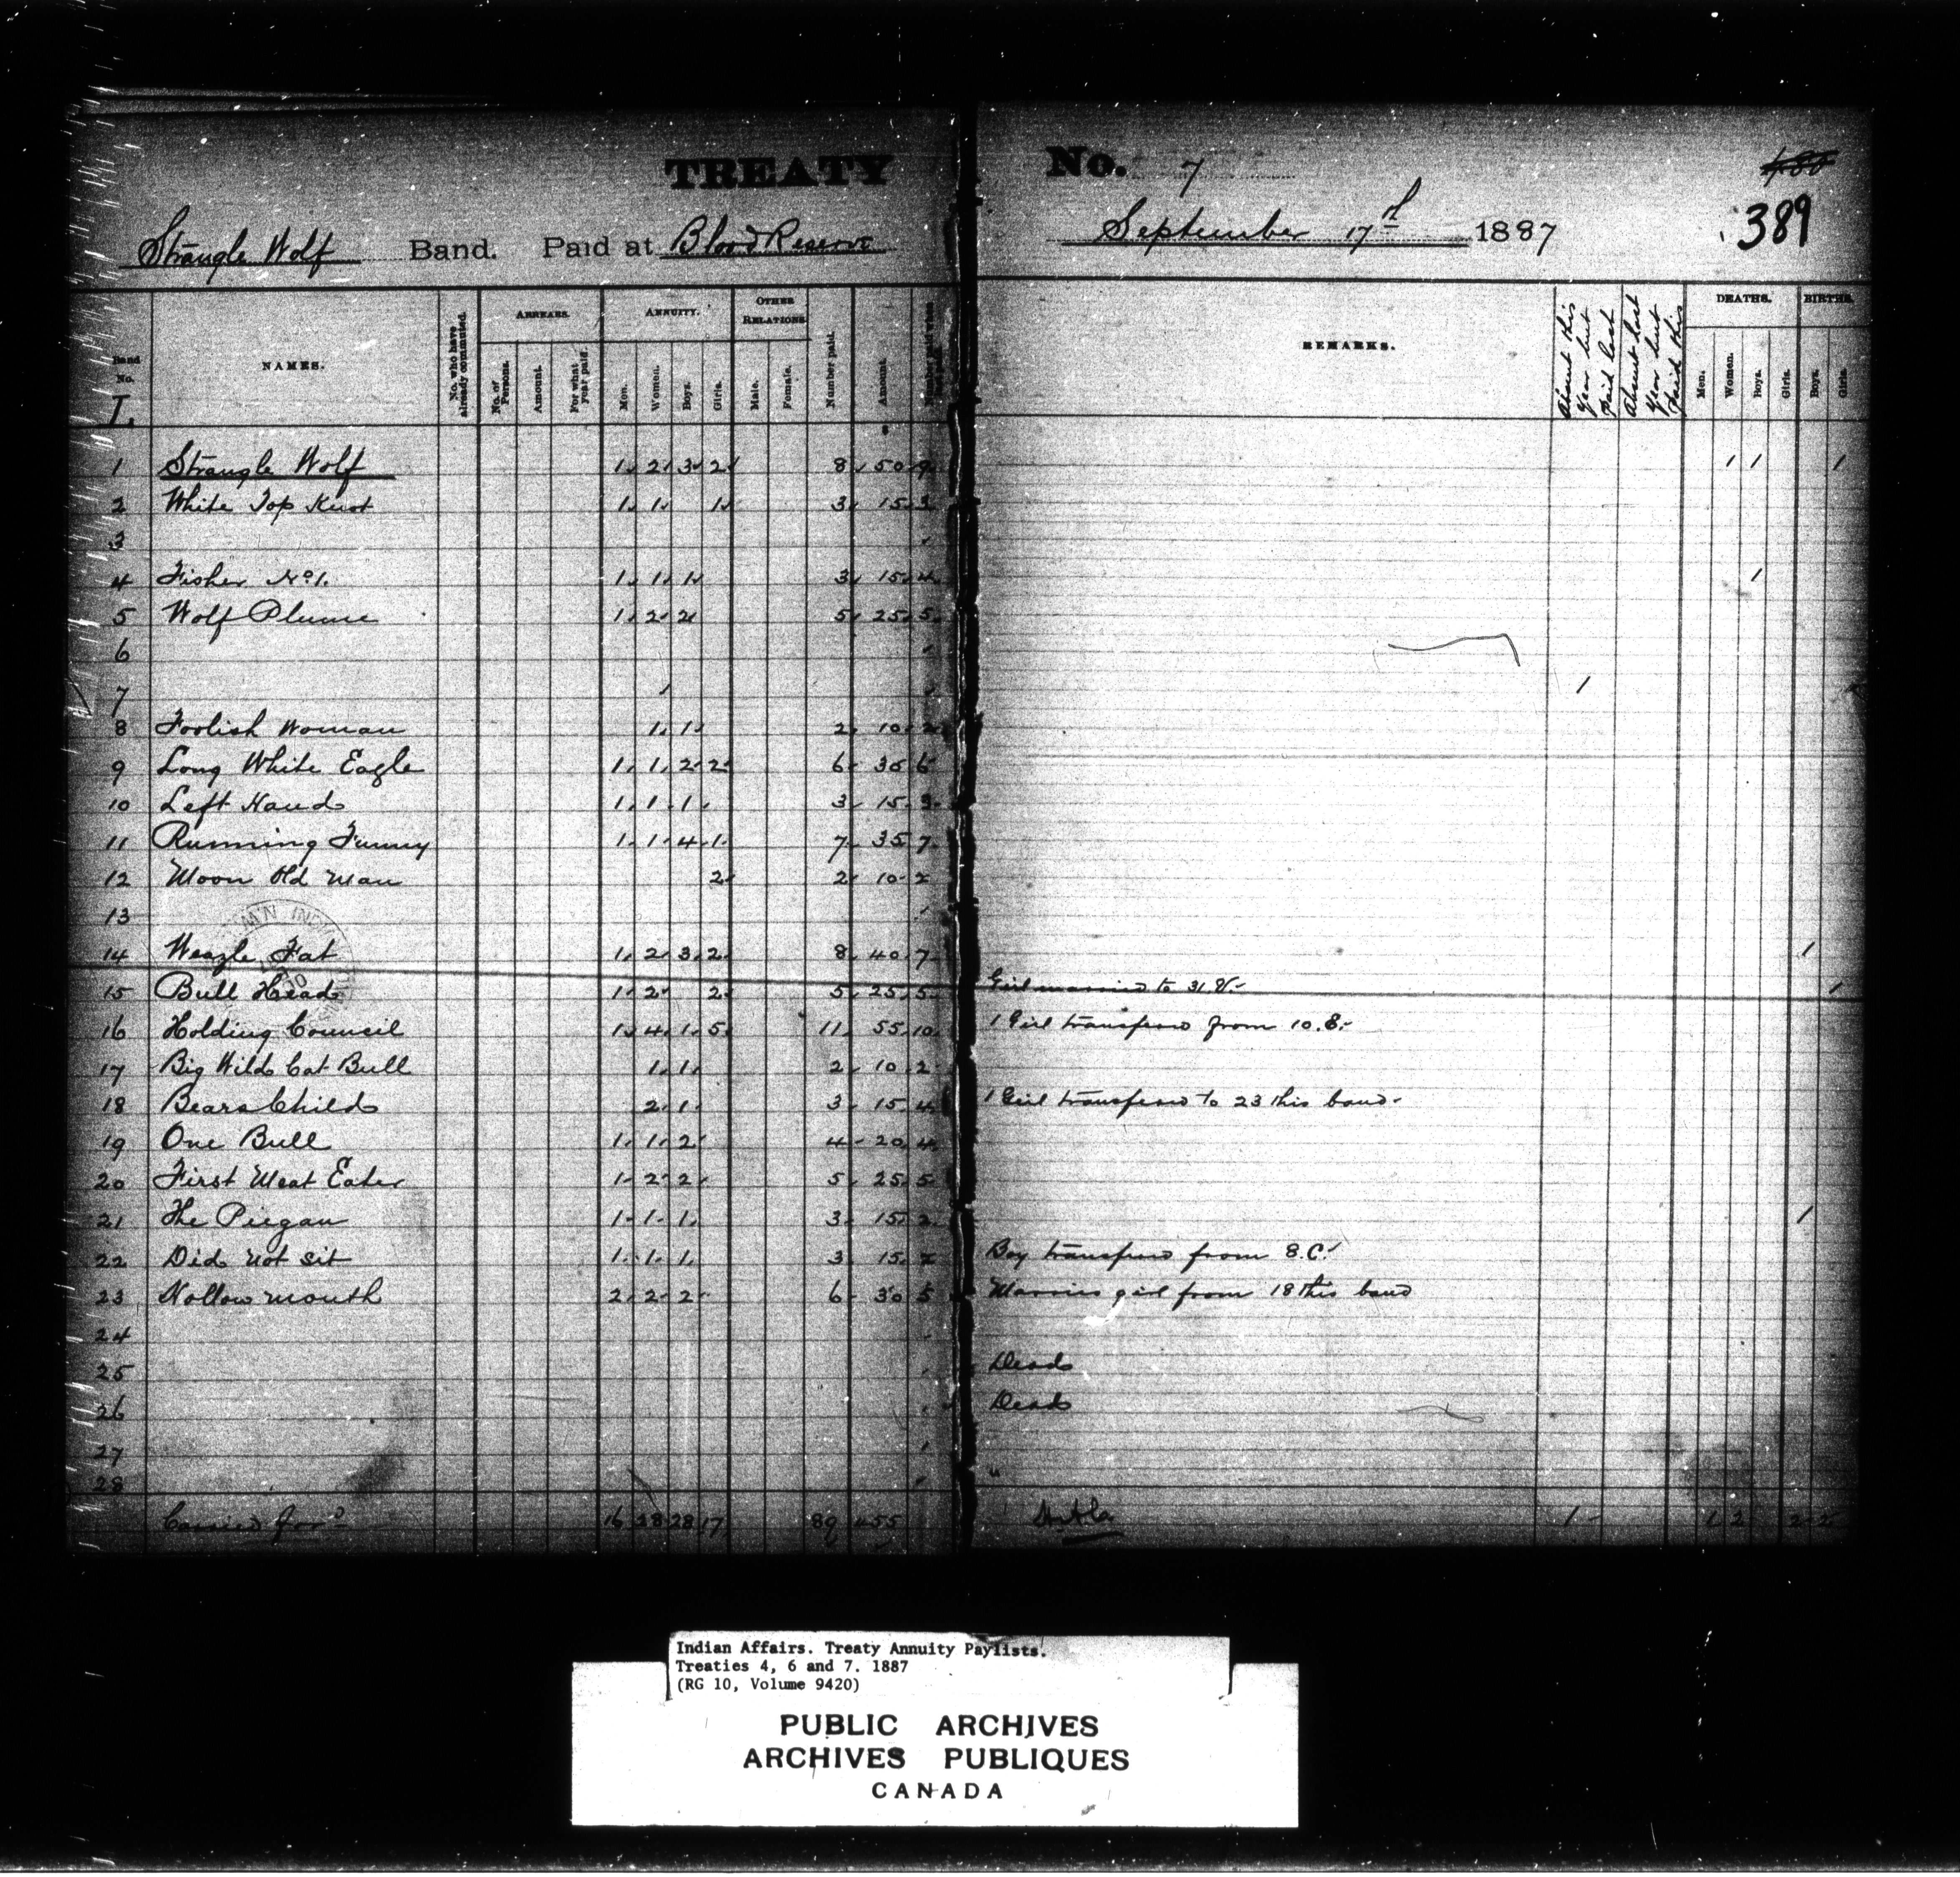 TREATY No. 7
480
389
Strangle Wolf Band. Paid at Blood Reserve September 17th 1887
Band No. L
NAMES.
No. who have already commuted.
ARREARS.
No. of Persons.
Amount.
For what year paid.
ANNUITY.
Men.
Women.
Boys.
Girls.
OTHER RELATIONS
Male.
Female.
Number paid.
Amount.
REMARKS.
Absent this Year but Paid last
Absent last Year but Paid this
DEATHS.
Men.
Women.
Boys.
Girls.
BIRTHS.
Boys.
Girls.
1 Strangle Wolf 1 2 3 2 8 50 9 1 1 1
2 White Top Knot 1 1 1 3 15 3
3
4 Fisher No 1. 1 1 1 3 15 4 1
5 Wolf Plume 1 2 2 5 25 5
6
7 1
8 Foolish Woman 1 1 2 10 2
9 Long White Eagle 1 1 2 2 6 30 6
10 Left Hand 1 1 1 3 15 3
11 Running Funny 1 1 4 1 7 35 7
12 Moon Old Man 2 2 10 2
13
14 Weazle Fat 1 2 3 2 8 40 7 1
15 Bull Head 1 2 2 5 25 5 Girl married to 31. 1
16 Holding Council 1 4 1 5 11 55 10 1 Girl transferd from 10. E.
17 Big Wild Cat Bull 1 1 2 10 2
18 Bears Child 2 1 3 15 4 1 Girl transferd to 23 this band
19 One Bull 1 1 2 4 20 4
20 First Meat Eater 1 2 2 5 25 5
21 The Piegan 1 1 1 3 15 2 1
22 Did not sit 1 1 1 3 15 2 Boy transferd from 8. C.
23 Hollow mouth 2 2 2 6 30 5 Marries girl from 18 this band
24
25 Dead
26 Dead
27
28 "
Carried for'd 16 28 28 17 89 455 1 1 2 2 2
Indian Affairs. Treaty Annuity Paylists.
Treaties 4, 6 and 7. 1887
(RG 10, Volume 9420)
PUBLIC ARCHIVES
ARCHIVES PUBLIQUES
CANADA